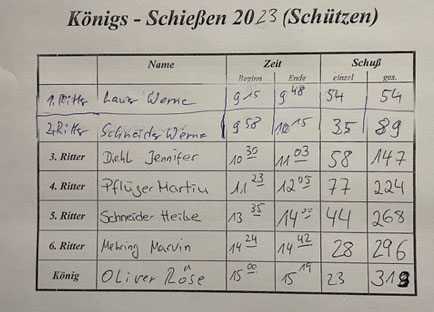 Königs - Schießen 2023 (Schützen)
Name Zeit Schuß
Beginn Ende einzel ges.
1. Ritter Lauer Werne 9 15 9 48 54 54
2. Ritter Schneider Werne 9 58 10 15 35 89
3. Ritter Diehl Jennifer 10 35 11 03 58 147
4. Ritter Pflüger Martin 11 23 12 05 77 224
5. Ritter Schneider Heike 13 35 14 00 44 268
6. Ritter Mehring Marvin 14 24 14 42 28 296
König Oliver Röse 15 00 15 19 23 319